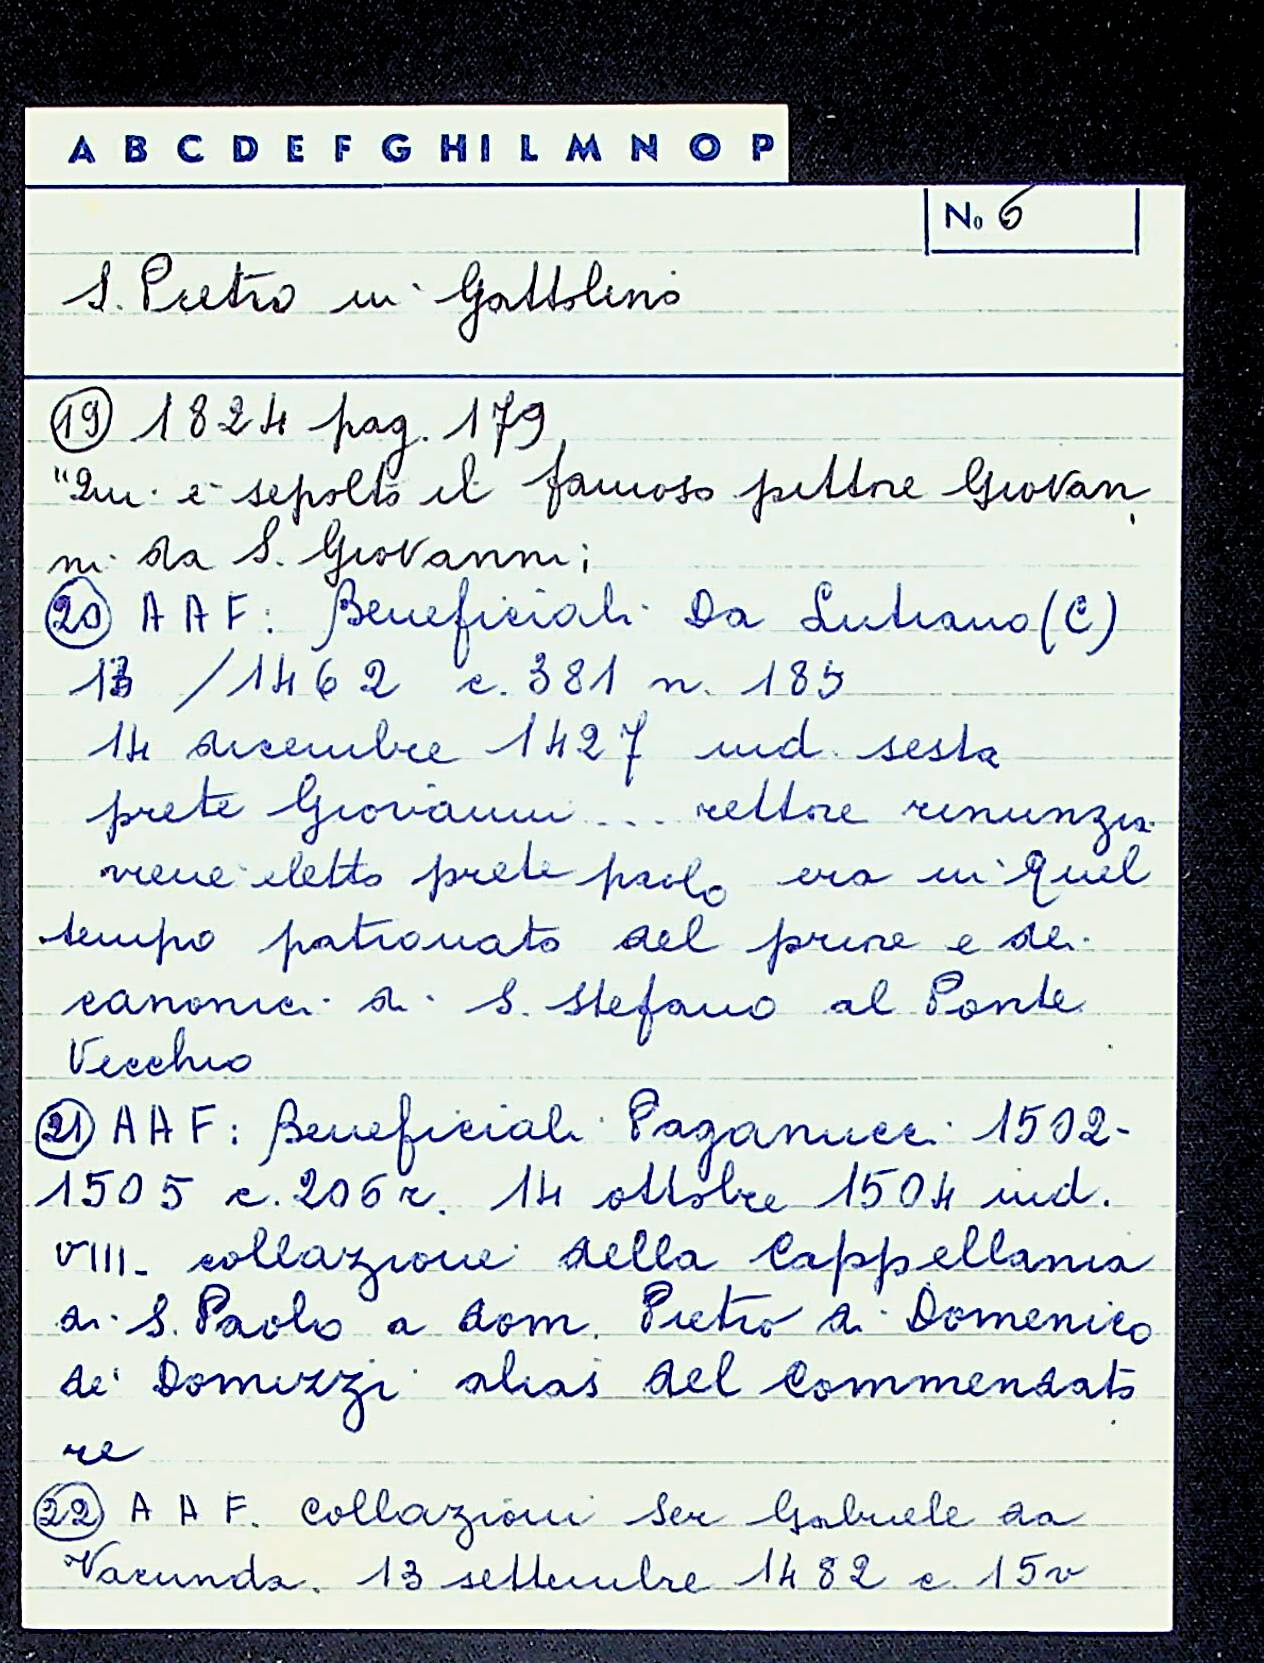 A B C D E F G H I L M N O P
No 6
S. Pietro in Gattolino
19 1824 pag. 179
"Qui è sepolto il famoso pittore Giovan
ni da S. Giovanni;
20 A A F: Beneficiali Da Lutiano (C)
13 / 1462 c. 381 n. 185
14 dicembre 1427 ind. sesta
prete Giovanni ... rettore rinunzia
viene eletto prete paolo era in quel
tempo patronato del priore e dei
canonici di S. Stefano al Ponte
Vecchio
21 A A F: Beneficiali Paganucci 1502-
1505 c. 206 r. 14 ottobre 1504 ind.
VIII - collazione della Cappellania
di S. Paolo a dom. Pietro di Domenico
de' Domizzi alias del Commendato
re
22 A A F. Collazioni Ser Gabriele da
Vacunda. 13 settembre 1482 c. 15v